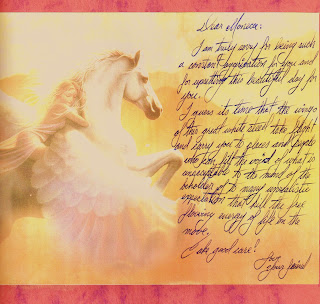 Dear Monica:
I am truly sorry for being such
a constant aggravation for you and
for upsetting this beautiful day for
you.
I guess its time that the wings
of this great white steed take flight
and carry you to places and people
who can fill the void of what is
to the mind of the
beholder of to many unrealistic
expectations that kill the free
flowing energy of life on the
move.
Take good care!
Love
your friend